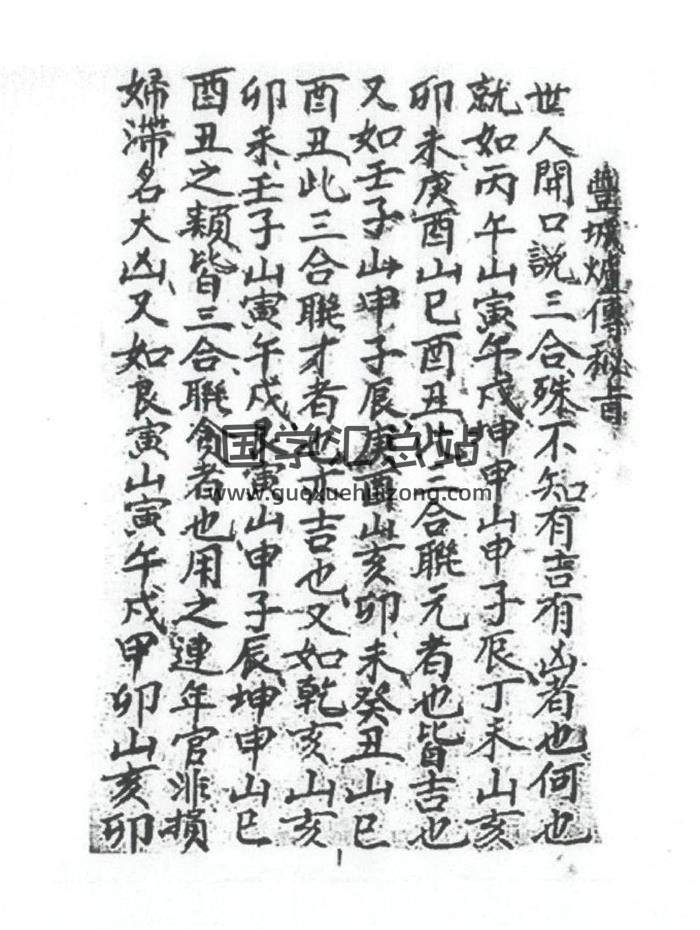 豐城爐傳秘旨
世人開口說三合殊不知有吉有凶者也何也
就如丙午山寅午戌坤申山申子辰丁未山亥
卯未庚酉山巳酉丑此三合聯元者也皆吉也
又如壬子山申子辰庚酉山亥卯未癸丑山巳
酉丑此三合聯才者也亦吉也又如乾亥山亥
卯未壬子山寅午戌艮寅山申子辰坤申山巳
酉丑之類皆三合聯貪者也用之連年官非損
婦滞名大凶又如艮寅山寅午戌甲卯山亥卯
1
国学汇总站
www.guoxuehuizong.com